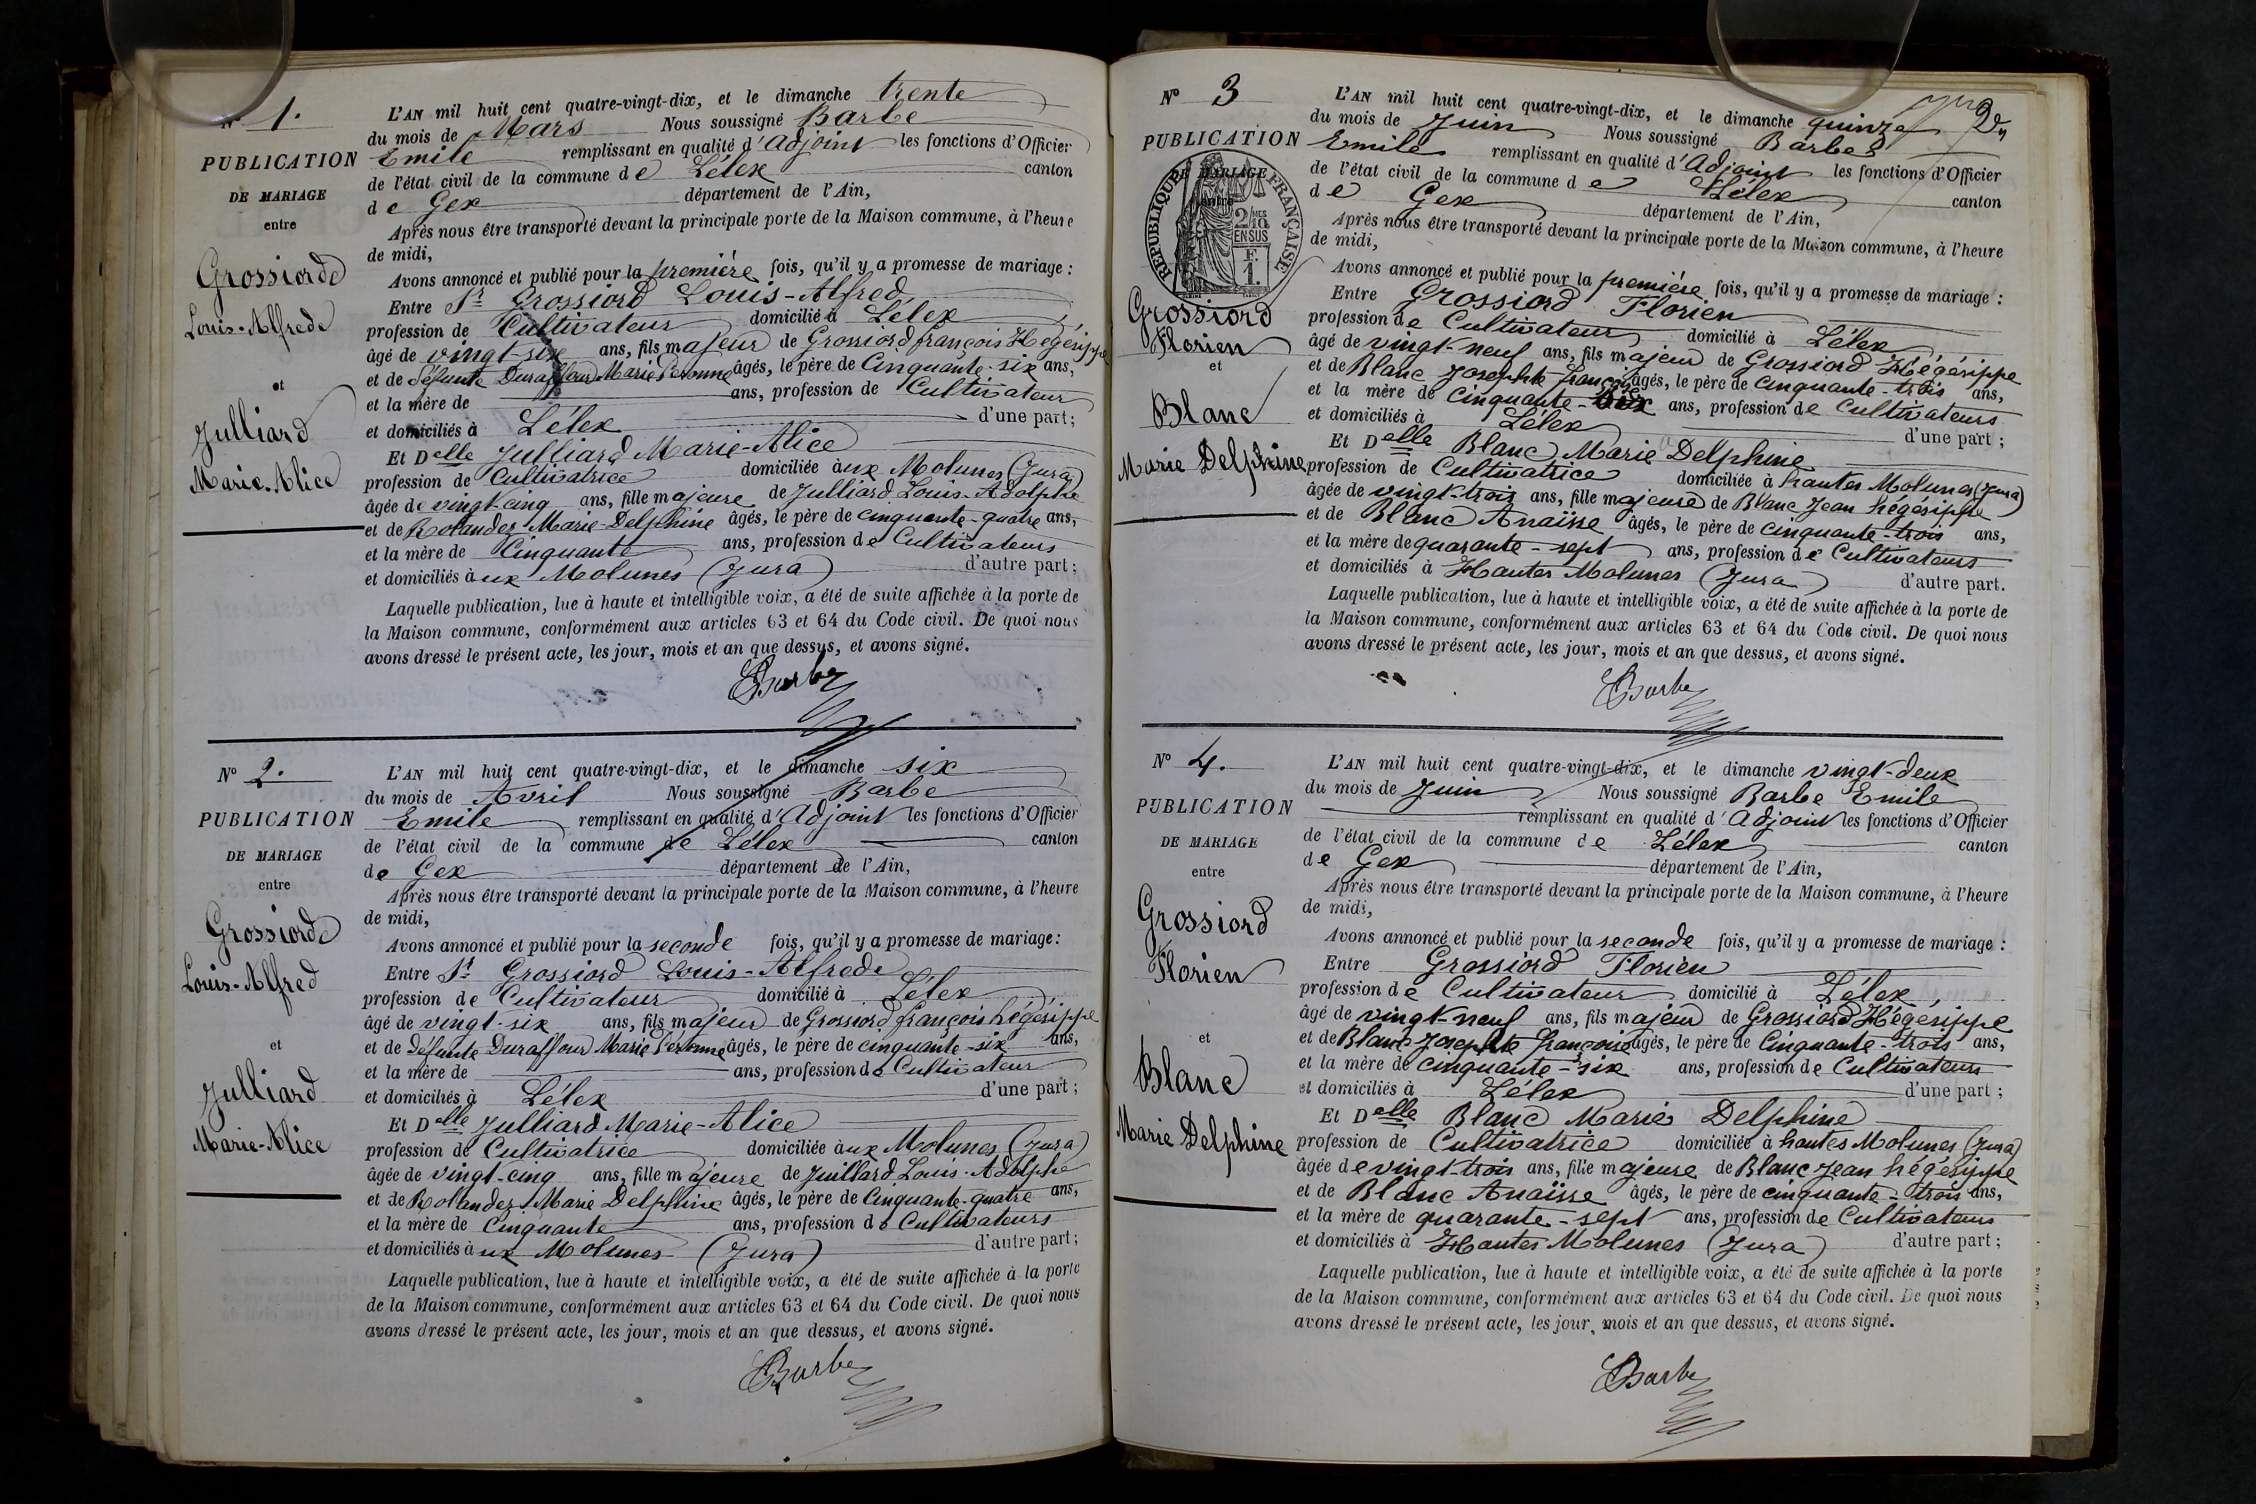 N° 1.
PUBLICATION
DE MARIAGE
entre
Grossiord
Louis-Alfred
et
Julliard
Marie-Alice
L'AN mil huit cent quatre-vingt-dix, et le dimanche trente
du mois de Mars Nous soussigné Barbe
Emile remplissant en qualité d'Adjoint les fonctions d'Officier
de l'état civil de la commune de Lélex canton
de Gex département de l'Ain,
Après nous être transporté devant la principale porte de la Maison commune, à l'heure
de midi,
Avons annoncé et publié pour la première fois, qu'il y a promesse de mariage :
Entre Sr Grossiord Louis-Alfred
profession de Cultivateur domicilié à Lélex
âgé de vingt-six ans, fils majeur de Grossiord françois Hégésippe
et de défunte Duraffour Marie Péronne âgés, le père de Cinquante-six ans,
et la mère de ans, profession de Cultivateur
et domiciliés à Lélex d'une part ;
Et Delle Julliard Marie-Alice
profession de Cultivatrice domiciliée aux Molunes (Jura)
âgée de vingt-cinq ans, fille majeure de Julliard Louis-Adolphe
et de Rolandez Marie-Delphine âgés, le père de cinquante-quatre ans,
et la mère de Cinquante ans, profession de Cultivateurs
et domiciliés aux Molunes (Jura) d'autre part ;
Laquelle publication, lue à haute et intelligible voix, a été de suite affichée à la porte de
la Maison commune, conformément aux articles 63 et 64 du Code civil. De quoi nous
avons dressé le présent acte, les jour, mois et an que dessus, et avons signé.
Barbe
N° 2.
PUBLICATION
DE MARIAGE
entre
Grossiord
Louis-Alfred
et
Julliard
Marie-Alice
L'AN mil huit cent quatre-vingt-dix, et le dimanche six
du mois de Avril Nous soussigné Barbe
Emile remplissant en qualité d'Adjoint les fonctions d'Officier
de l'état civil de la commune de Lélex canton
de Gex département de l'Ain,
Après nous être transporté devant la principale porte de la Maison commune, à l'heure
de midi,
Avons annoncé et publié pour la seconde fois, qu'il y a promesse de mariage :
Entre Sr Grossiord Louis-Alfred
profession de Cultivateur domicilié à Lélex
âgé de vingt-six ans, fils majeur de Grossiord françois hégésippe
et de défunte Duraffour Marie Péronne âgés, le père de cinquante-six ans,
et la mère de ans, profession de Cultivateur
et domiciliés à Lélex d'une part ;
Et Delle Julliard Marie-Alice
profession de Cultivatrice domiciliée aux Molunes (Jura)
âgée de vingt-cinq ans, fille majeure de Juillard Louis-Adolphe
et de Rolandez Marie Delphine âgés, le père de Cinquante-quatre ans,
et la mère de Cinquante ans, profession de Cultivateurs
et domiciliés aux Molunes (Jura) d'autre part ;
Laquelle publication, lue à haute et intelligible voix, a été de suite affichée à la porte
de la Maison commune, conformément aux articles 63 et 64 du Code civil. De quoi nous
avons dressé le présent acte, les jour, mois et an que dessus, et avons signé.
Barbe
N° 3
PUBLICATION
DE MARIAGE
entre
REPUBLIQUE FRANÇAISE
2/10MES EN SUS
F. 1
Grossiord
Florien
et
Blanc
Marie Delphine
L'AN mil huit cent quatre-vingt-dix, et le dimanche quinze
du mois de Juin Nous soussigné Barbe
Emile remplissant en qualité d'Adjoint les fonctions d'Officier
de l'état civil de la commune de Lélex canton
de Gex département de l'Ain,
Après nous être transporté devant la principale porte de la Maison commune, à l'heure
de midi,
Avons annoncé et publié pour la première fois, qu'il y a promesse de mariage :
Entre Grossiord Florien
profession de Cultivateur domicilié à Lélex
âgé de vingt-neuf ans, fils majeur de Grossiord Hégésippe
et de Blanc Josephte françoise âgés, le père de cinquante-trois ans,
et la mère de cinquante-six ans, profession de Cultivateurs
et domiciliés à Lélex d'une part ;
Et Delle Blanc Marie Delphine
profession de Cultivatrice domiciliée à hautes Molunes (Jura)
âgée de vingt-trois ans, fille majeure de Blanc Jean hégésippe
et de Blanc Anaïsse âgés, le père de cinquante-trois ans,
et la mère de quarante-sept ans, profession de Cultivateurs
et domiciliés à Hautes Molunes (Jura) d'autre part.
Laquelle publication, lue à haute et intelligible voix, a été de suite affichée à la porte de
la Maison commune, conformément aux articles 63 et 64 du Code civil. De quoi nous
avons dressé le présent acte, les jour, mois et an que dessus, et avons signé.
Barbe
N° 4.
PUBLICATION
DE MARIAGE
entre
Grossiord
Florien
et
Blanc
Marie Delphine
L'AN mil huit cent quatre-vingt-dix, et le dimanche vingt-deux
du mois de Juin Nous soussigné Barbe Emile
remplissant en qualité d'Adjoint les fonctions d'Officier
de l'état civil de la commune de Lélex canton
de Gex département de l'Ain,
Après nous être transporté devant la principale porte de la Maison commune, à l'heure
de midi,
Avons annoncé et publié pour la seconde fois, qu'il y a promesse de mariage :
Entre Grossiord Florien
profession de Cultivateur domicilié à Lélex
âgé de vingt-neuf ans, fils majeur de Grossiord Hégésippe
et de Blanc Josephte françoise âgés, le père de Cinquante-trois ans,
et la mère de cinquante-six ans, profession de Cultivateurs
et domiciliés à Lélex d'une part ;
Et Delle Blanc Marie Delphine
profession de Cultivatrice domiciliée à hautes Molunes (Jura)
âgée de vingt-trois ans, fille majeure de Blanc Jean hégésippe
et de Blanc Anaïsse âgés, le père de cinquante-trois ans,
et la mère de quarante-sept ans, profession de Cultivateurs
et domiciliés à Hautes Molunes (Jura) d'autre part ;
Laquelle publication, lue à haute et intelligible voix, a été de suite affichée à la porte
de la Maison commune, conformément aux articles 63 et 64 du Code civil. De quoi nous
avons dressé le présent acte, les jour, mois et an que dessus, et avons signé.
Barbe